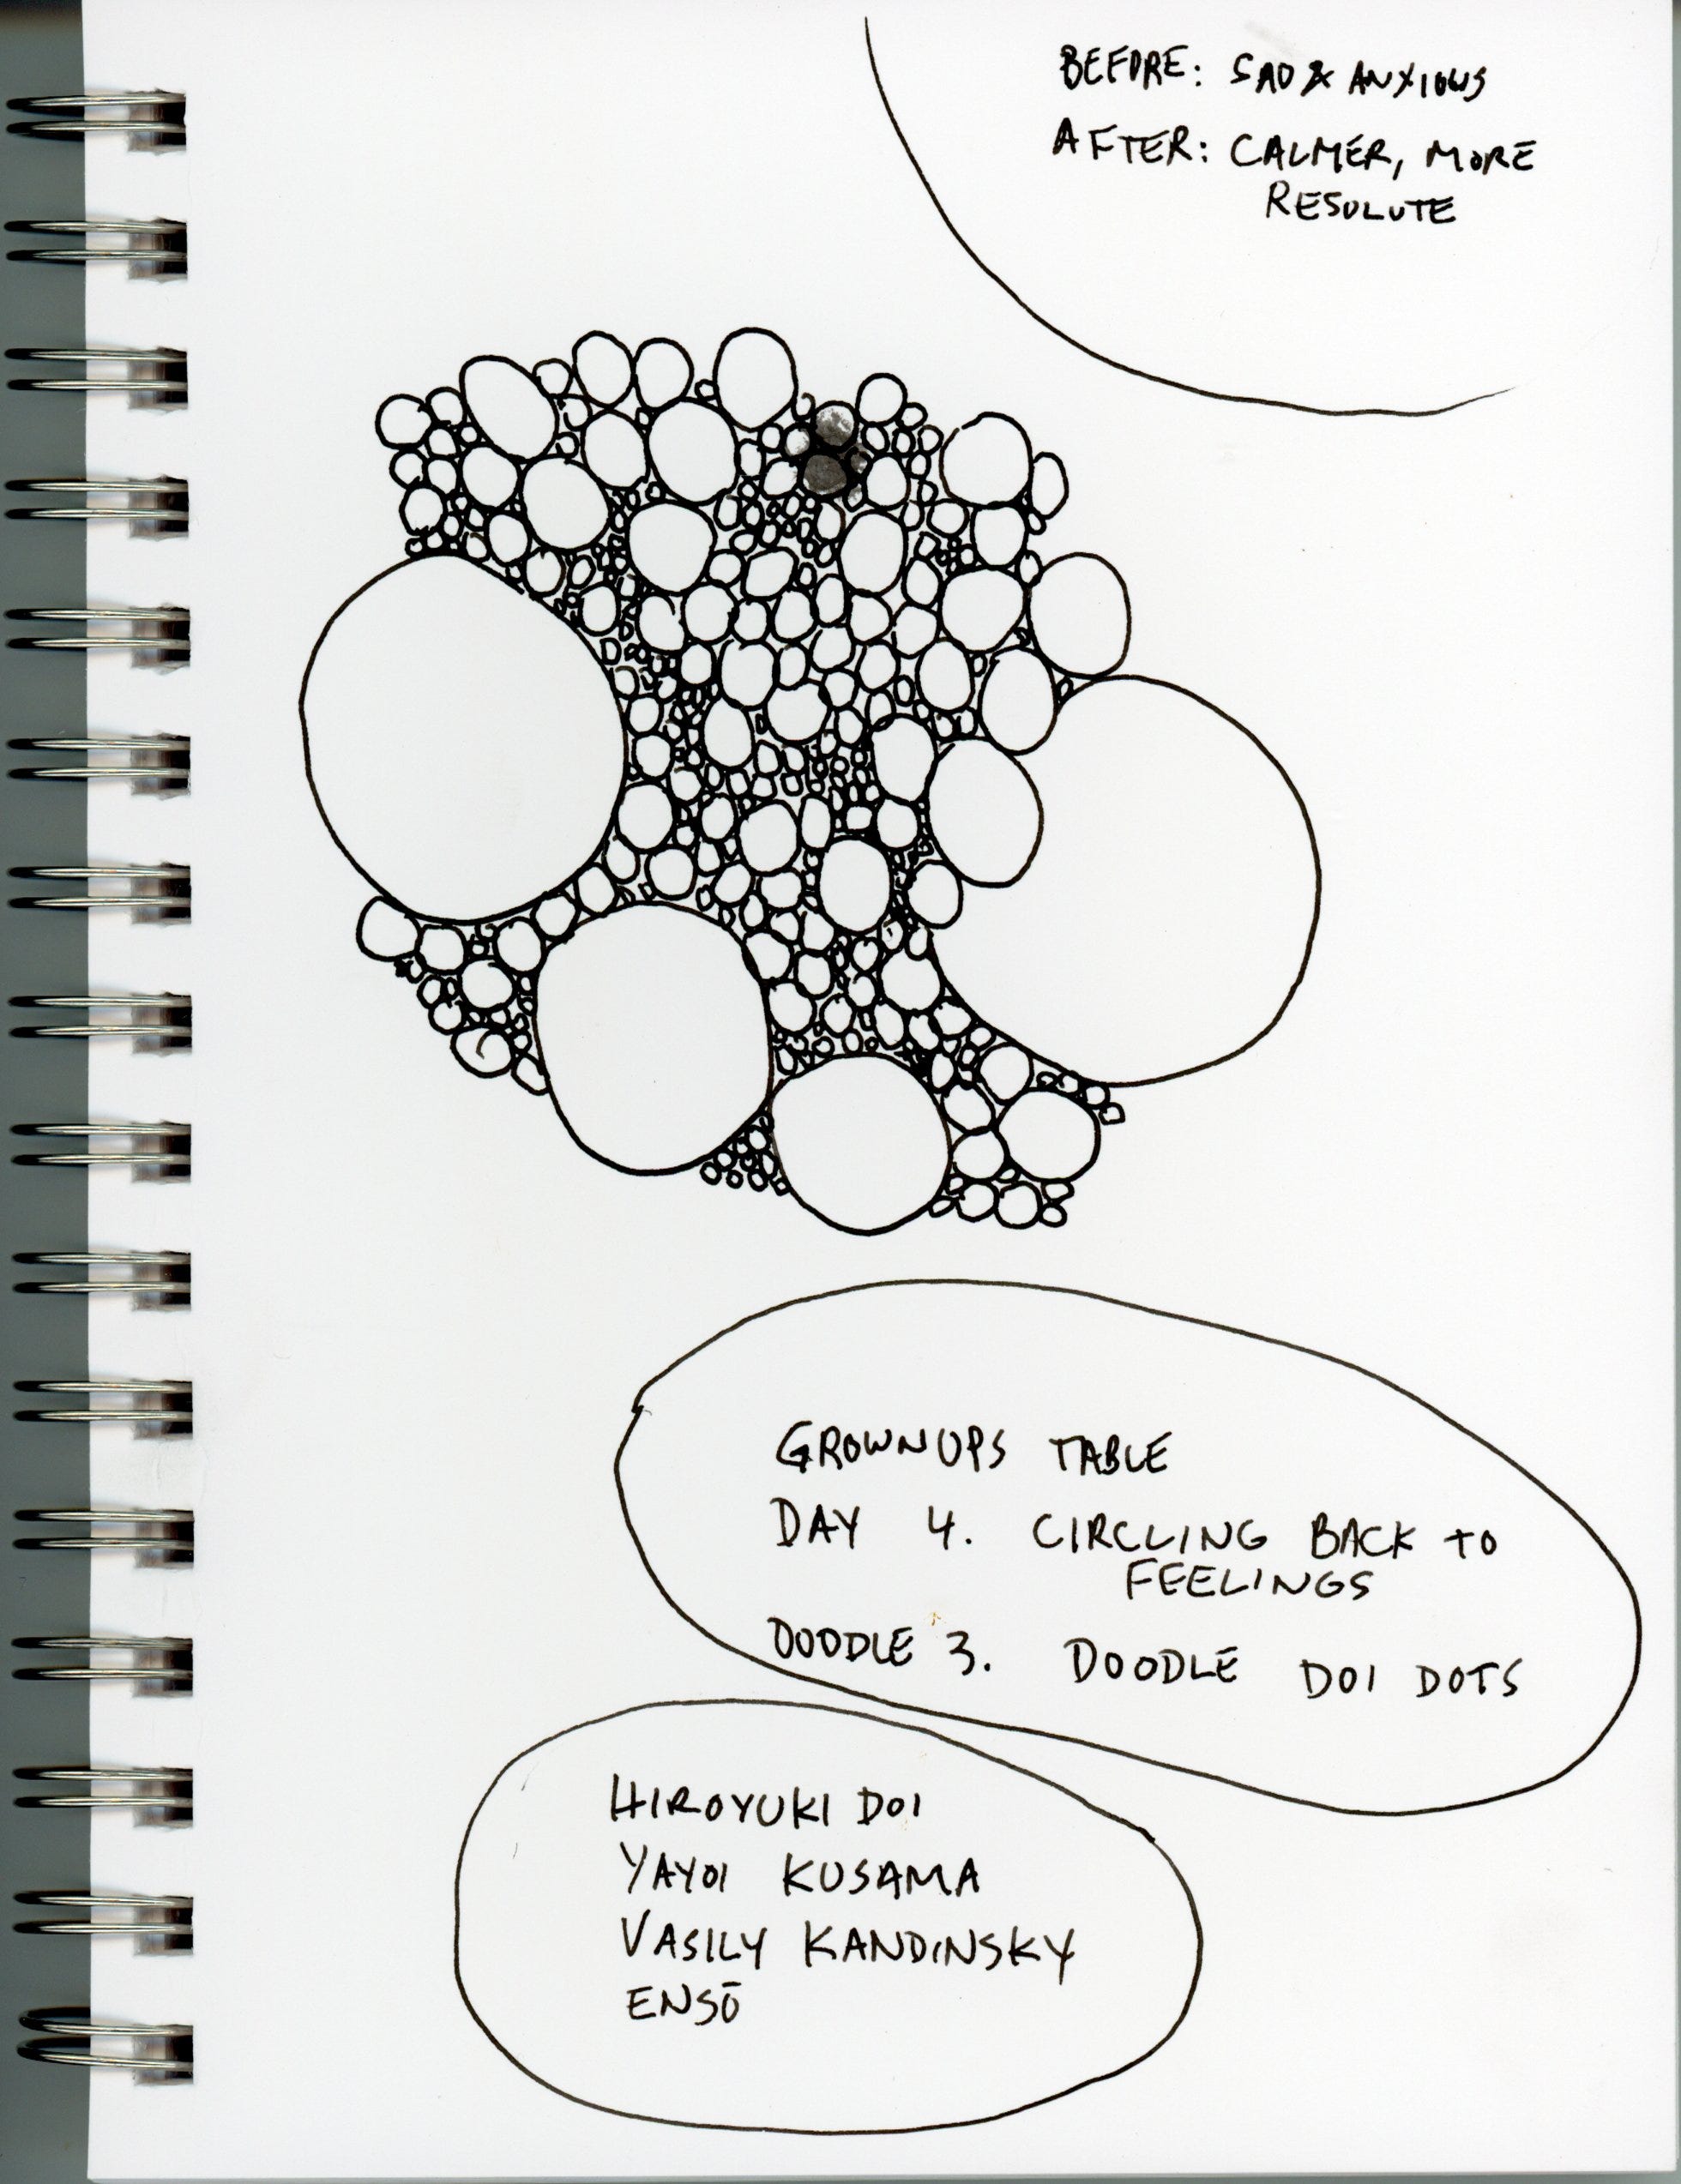 BEFORE: SAD & ANXIOUS
AFTER: CALMER, MORE
RESOLUTE
GROWNUPS TABLE
DAY 4. CIRCLING BACK TO
FEELINGS
DOODLE 3. DOODLE DOI DOTS
HIROYUKI DOI
YAYOI KUSAMA
VASILY KANDINSKY
ENSŌ